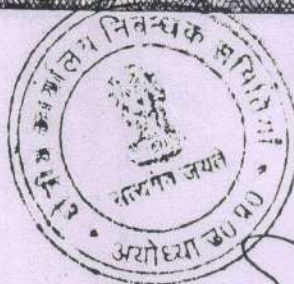 क्षेत्रीय कार्यालय निबन्धक समितियां
सत्यमेव जयते
अयोध्या उ० प्र०